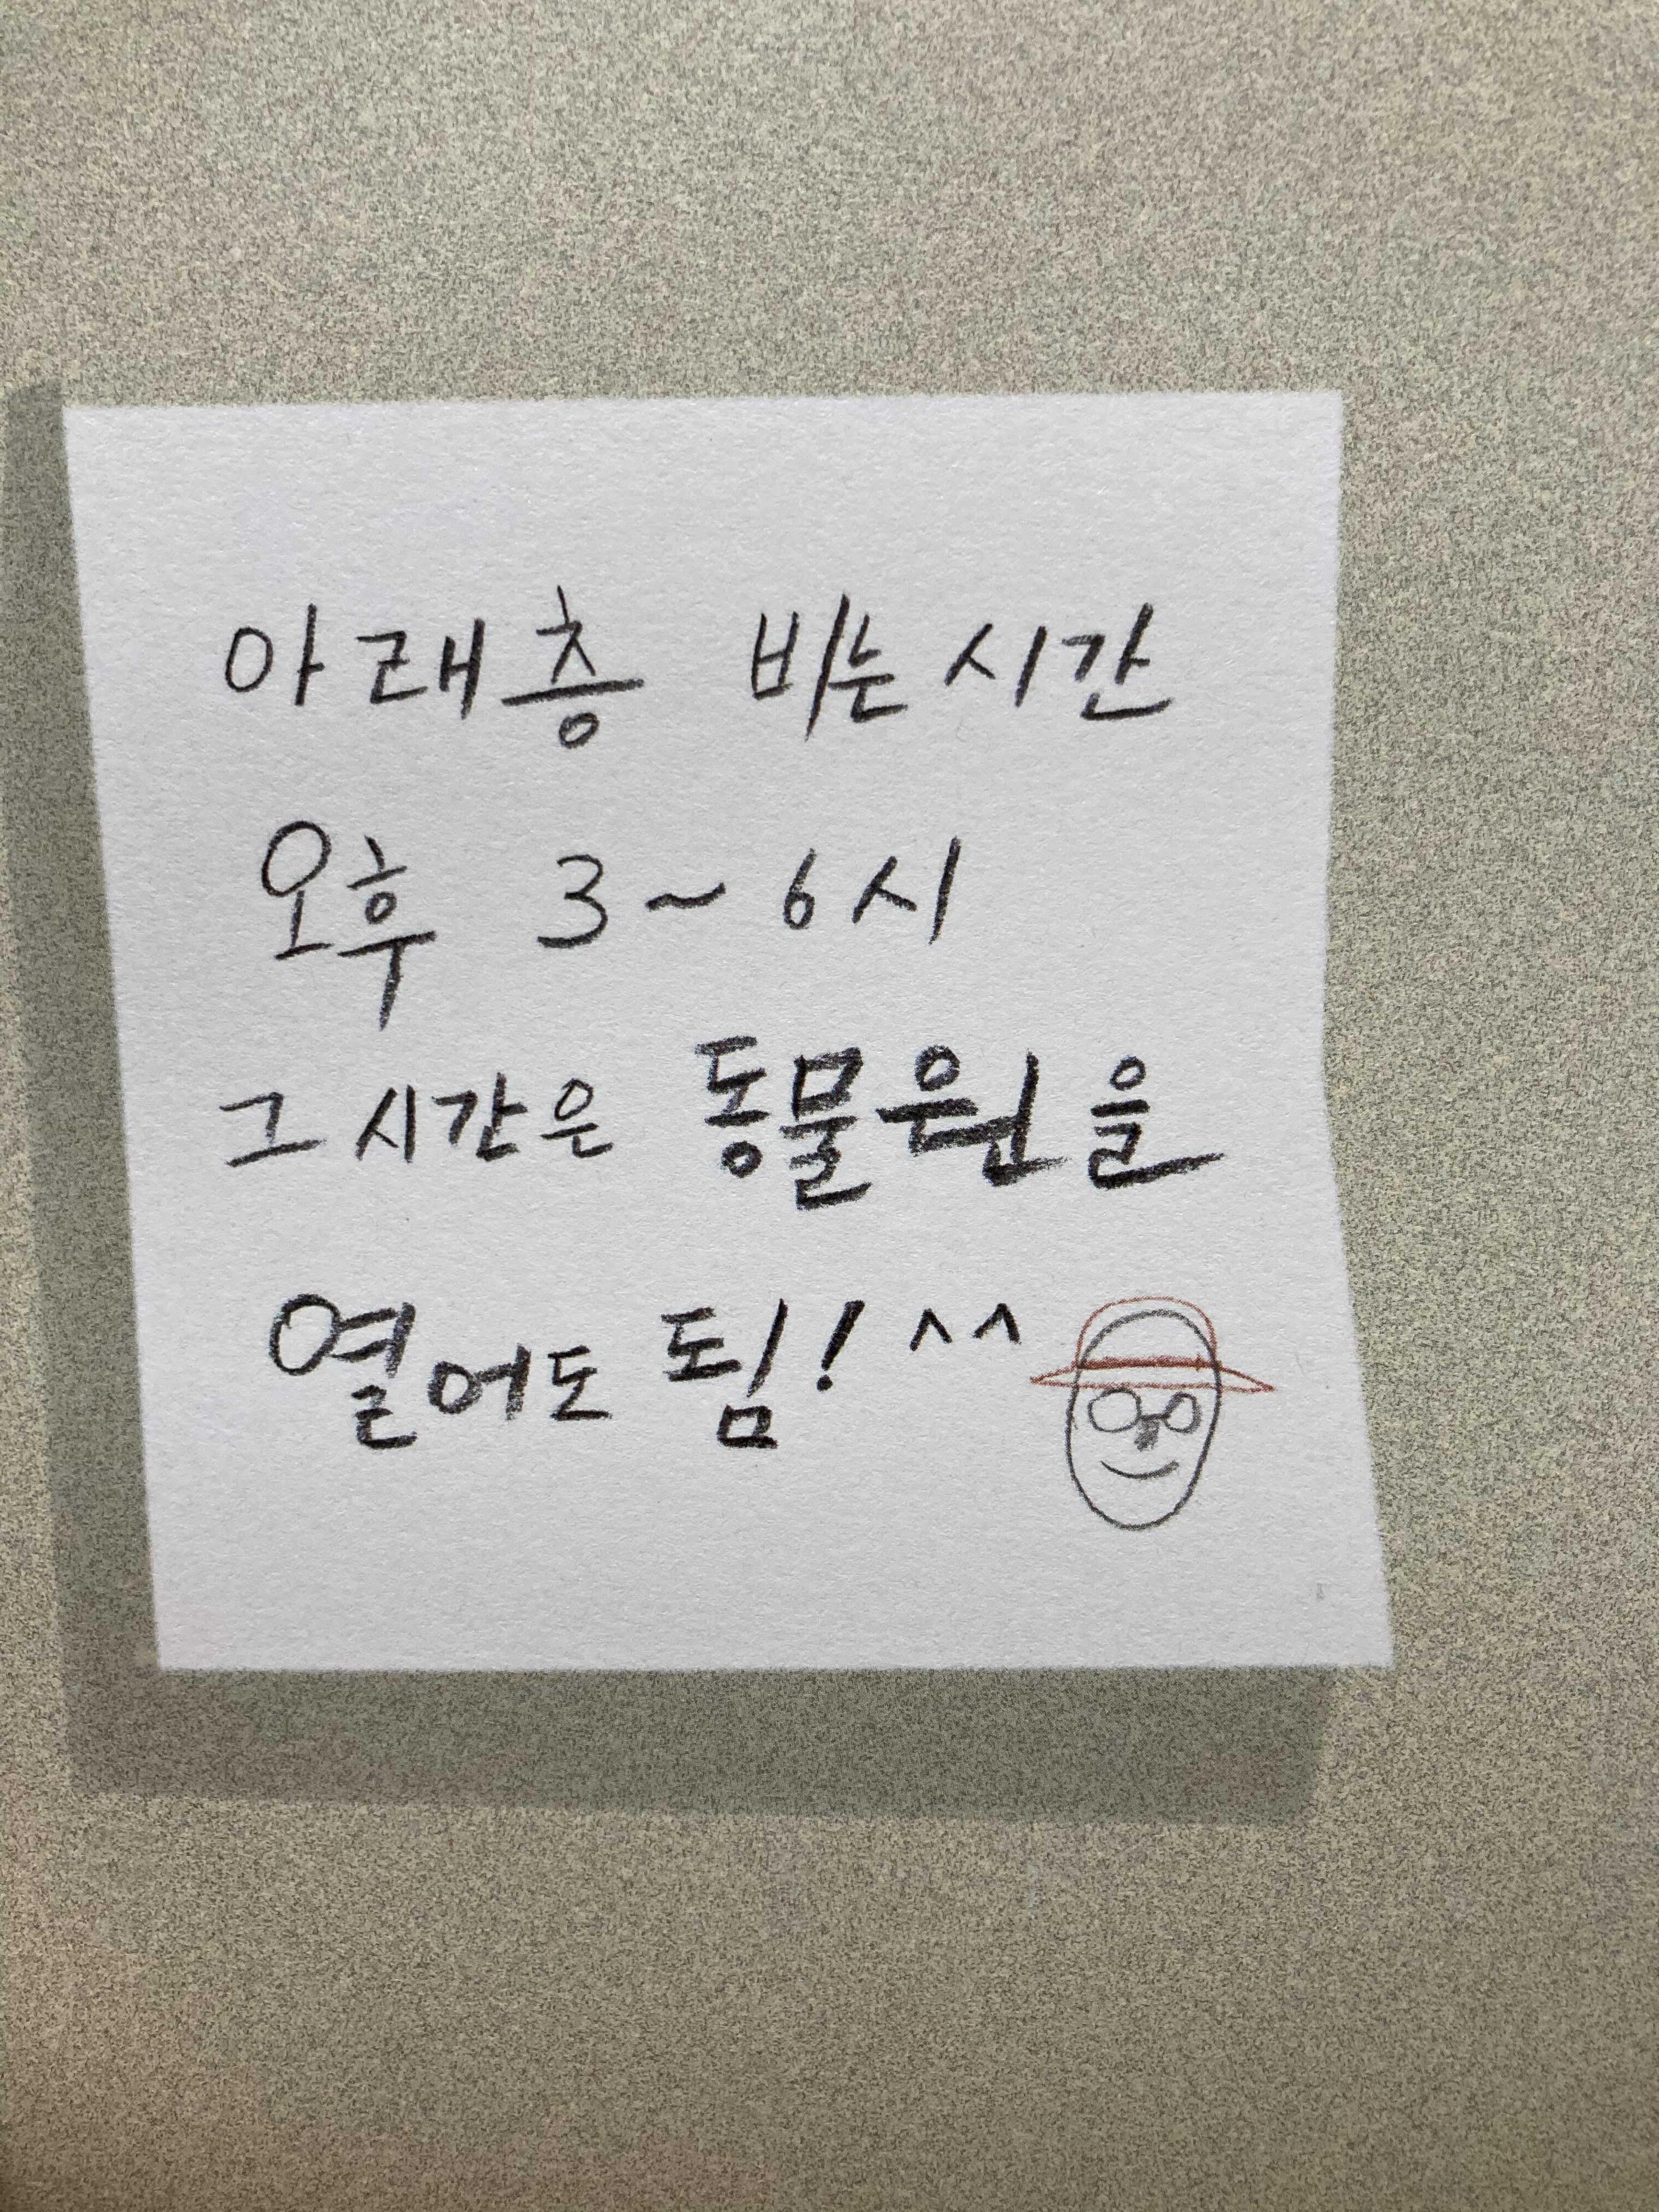 아래층 비는시간
오후 3~6시
그 시간은 동물원을
열어도 됨! ^^